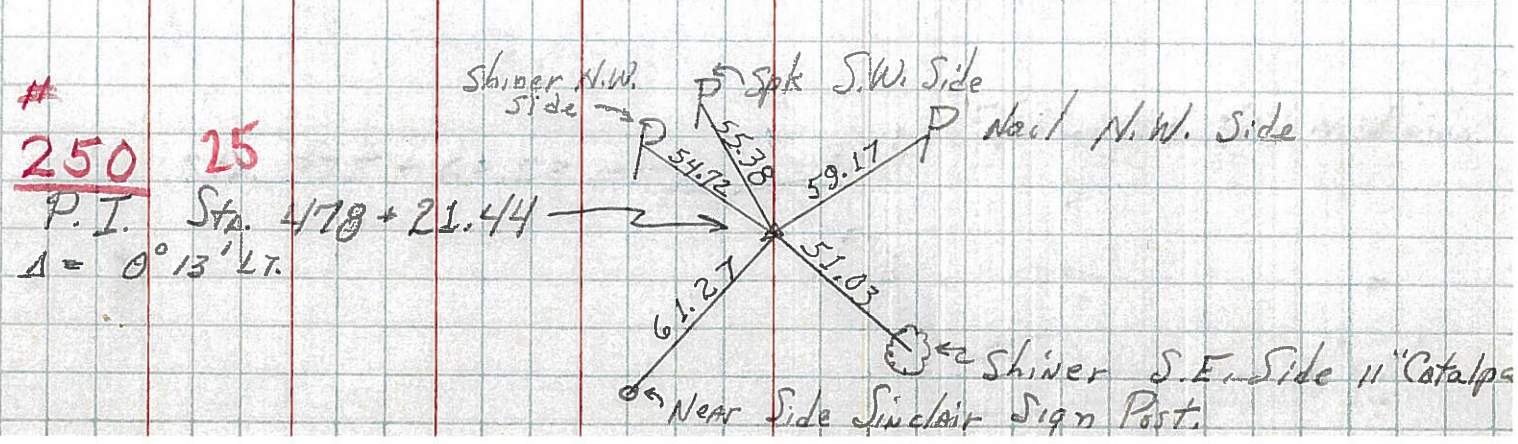 #
250 25
P.I. Sta. 478+21.44
Δ = 0°13' LT.
Shiner N.W.
Side
P
P Spk S.W. Side
P Nail N.W. Side
54.72
55.38
59.17
51.03
61.27
Shiner S.E. Side 11" Catalpa
Near Side Sinclair Sign Post.